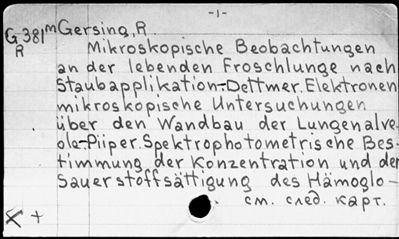 -1-
G 381m Gersing, R.
R Mikroskopische Beobachtungen
an der lebenden Froschlunge nach
Staubapplikation.-Dettmer. Elektronen
mikroskopische Untersuchungen
über den Wandbau der Lungenalve-
ole-Piiper. Spektrophotometrische Bes-
timmung der Konzentration und der
Sauerstoffsättigung des Hämoglo-
+ см. след. карт.